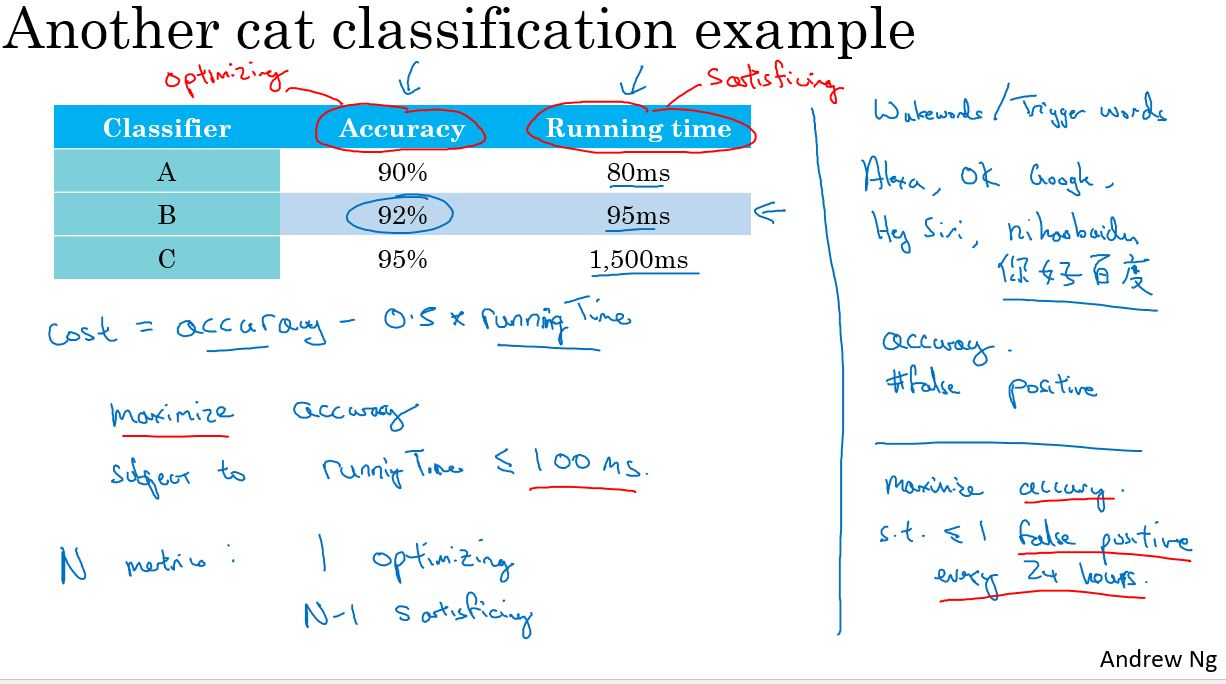 Another cat classification example
optimizing
Satisficing
Classifier Accuracy Running time
A 90% 80ms
B 92% 95ms
C 95% 1,500ms
Cost = accuracy - 0.5 x running Time
maximize accuracy
subject to running Time ≤ 100 ms.
N metrics : 1 optimizing
N-1 satisficing
Wakewords / Trigger words
Alexa, OK Google,
Hey Siri, nihaobaidu
你好百度
accuracy.
#false positive
maximize accuracy.
s.t. ≤ 1 false positive
every 24 hours.
Andrew Ng